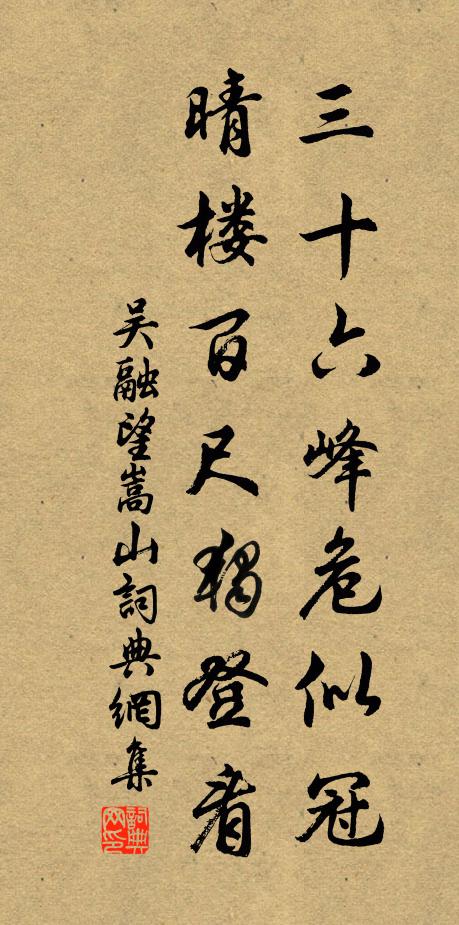 三十六峰危似冠
晴楼百尺獨登看
吴融望嵩山詞典網集
詞典网印